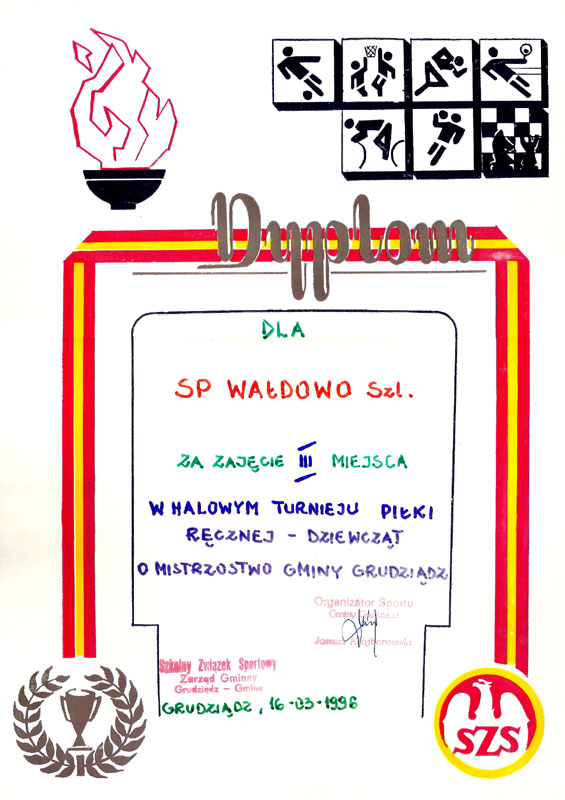 Dyplom
DLA
SP WAŁDOWO Szl.
ZA ZAJĘCIE III MIEJSCA
W HALOWYM TURNIEJU PIŁKI
RĘCZNEJ - DZIEWCZĄT
O MISTRZOSTWO GMINY GRUDZIĄDZ
Organizator Sportu
Gminy
Szkolny Związek Sportowy
Zarząd Gminny
Grudziądz - Gmina
GRUDZIĄDZ, 16-03-1996
SZS